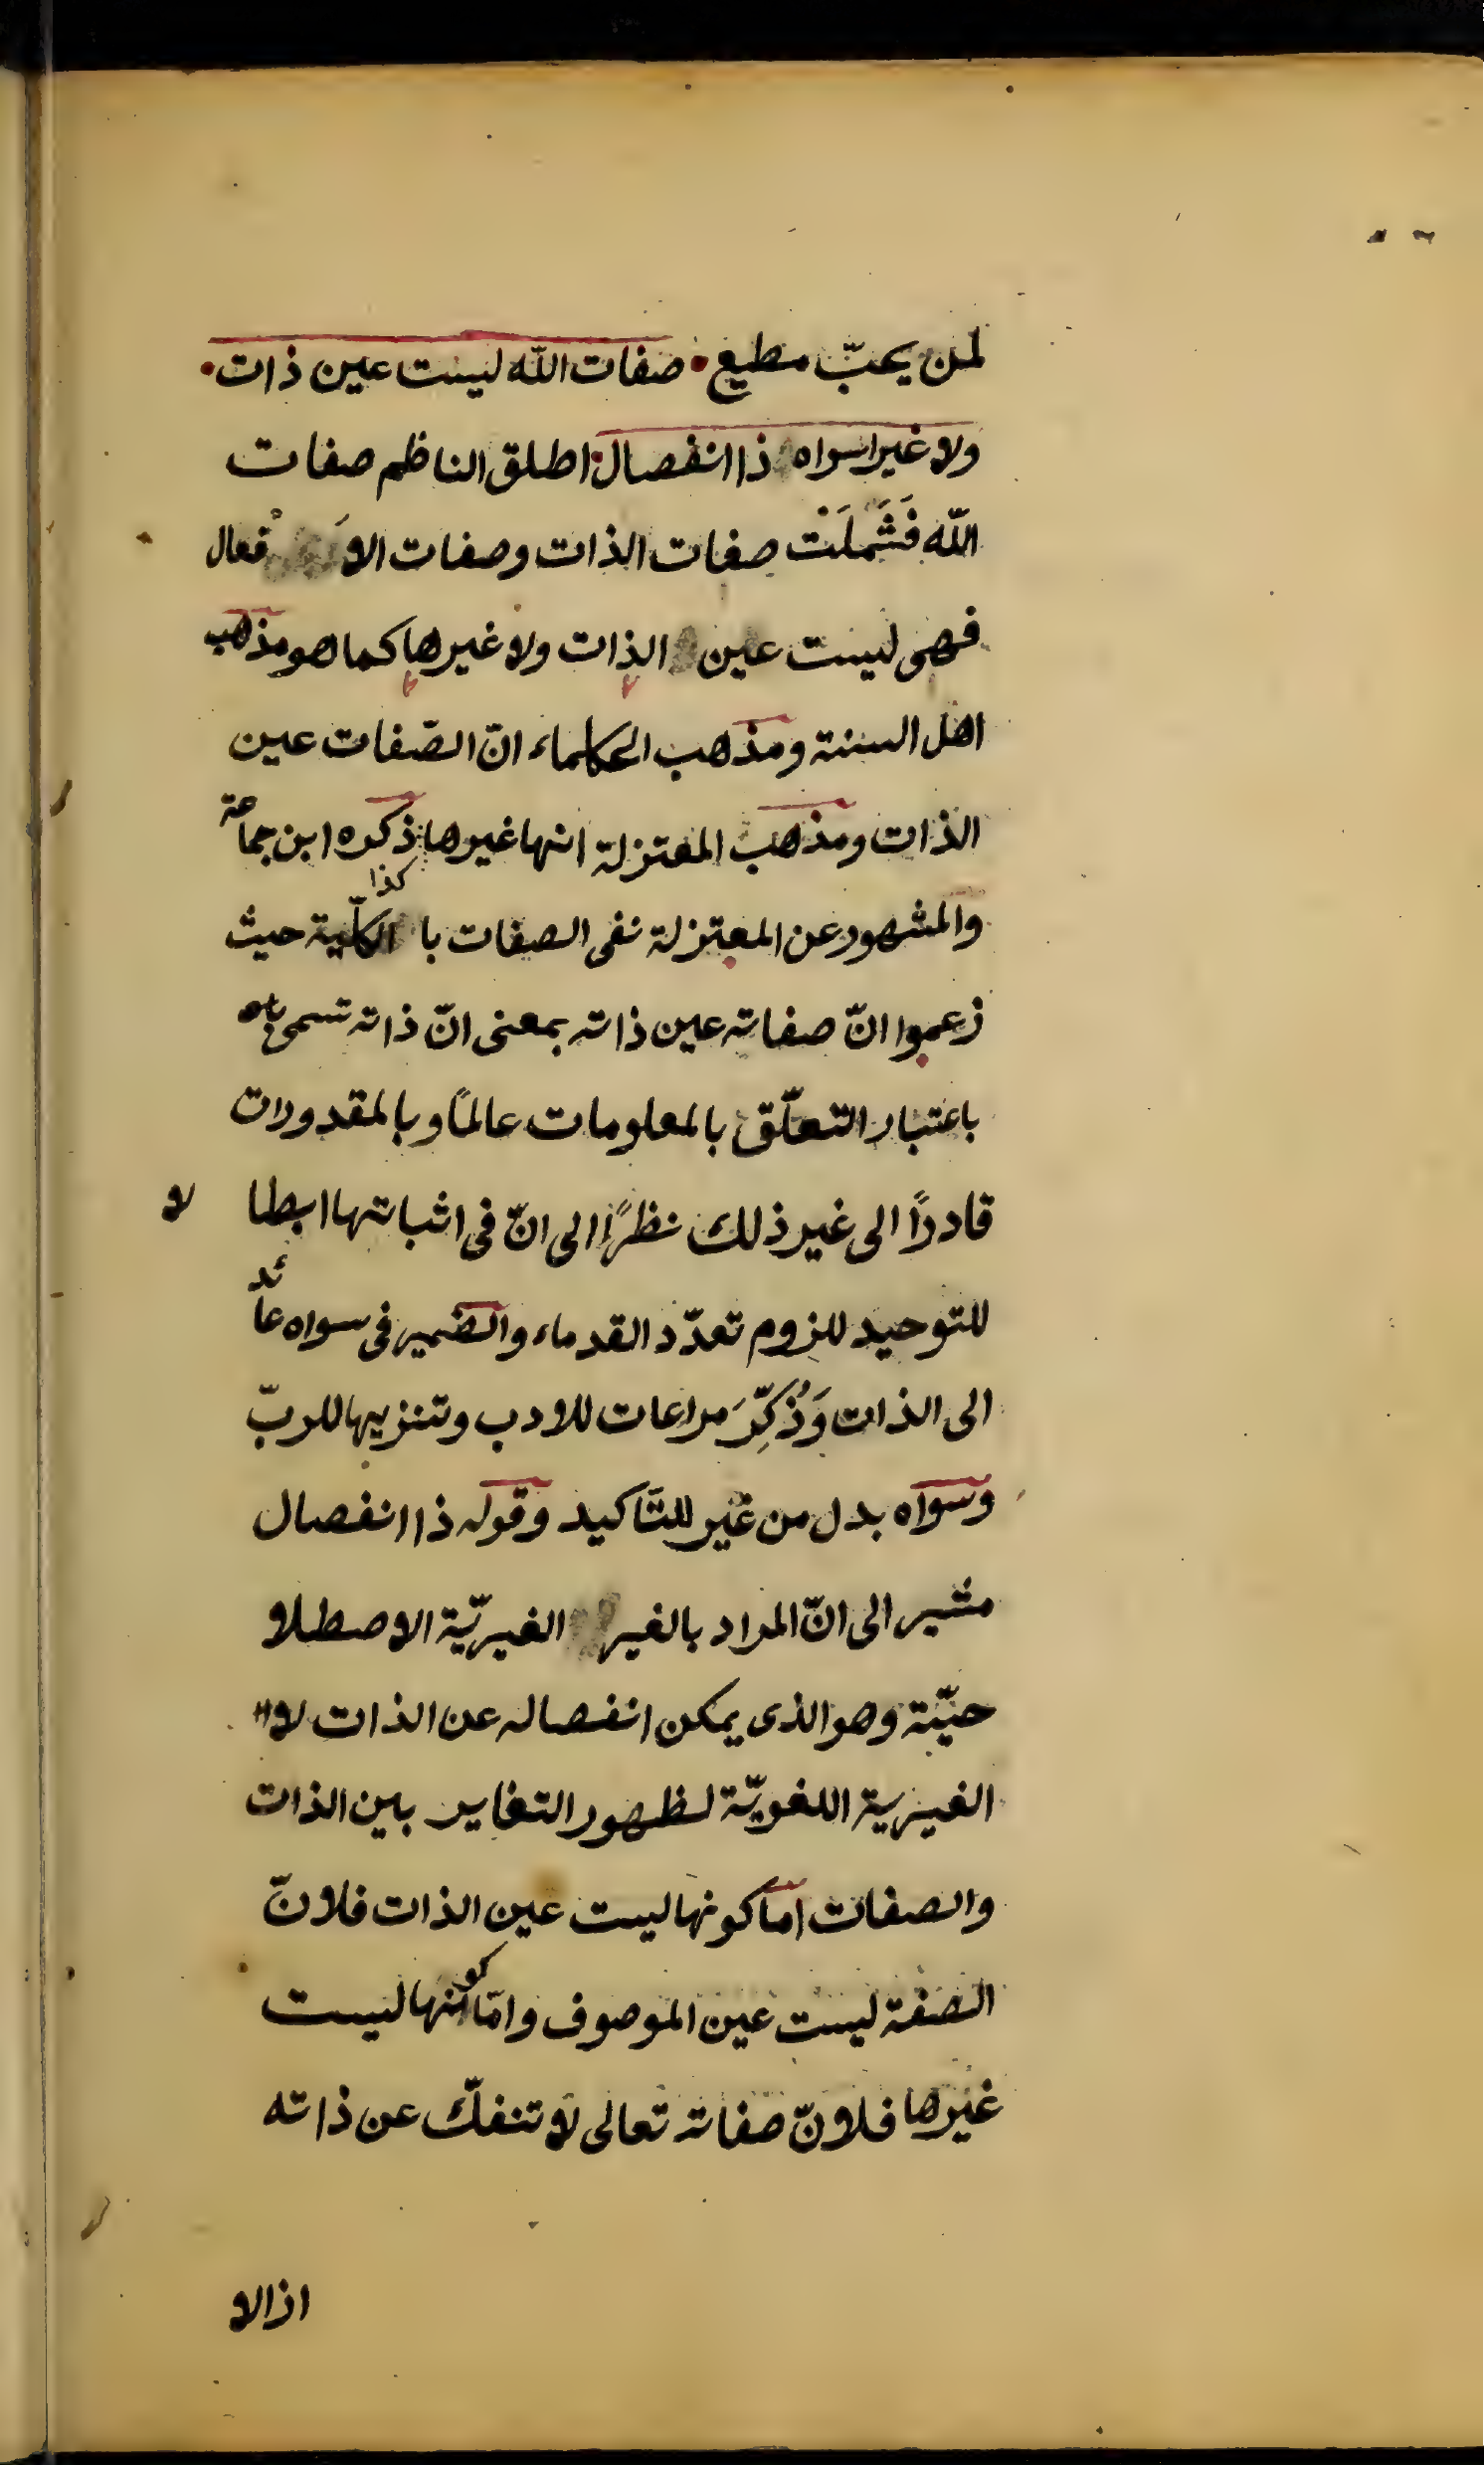 لمن يحبّ مطيع • صفات الله ليست عين ذات •
ولا غيرا سواه ذا انفصال • اطلق الناظم صفات
الله فَشَمَلَتْ صفات الذات وصفات الاَفْعال
فهى ليست عين الذات ولا غيرها كما هو مذهب
اهل السنة ومذهب الحكماء انّ الصّفات عين
الذات ومذهب المعتزلة انها غيرها كذا ذكره ابن جماعة
والمشهور عن المعتزلة نفى الصفات با لكلّية حيث
زعموا انّ صفاته عين ذاته بمعنى انّ ذاته تسمى
باعتبار التعلّق بالمعلومات عالمًا وبالمقدورات
قادرًا الى غير ذلك نظرًا الى انّ فى اثباتها ابطا لا
للتوحيد للزوم تعدّد القدماء والضمير فى سواه عائد
الى الذات وَذُكِّرَ مراعات للادب وتنزيها للربّ
وسواه بدل من غير للتاكيد وقوله ذا انفصال
مشير الى انّ المراد بالغير الغيريّة الاصطلا
حيّة وهو الذى يمكن انفصاله عن الذات لا
الغيرية اللغويّة لظهور التغاير بين الذات
والصفات اما كونها ليست عين الذات فلانّ
الصفة ليست عين الموصوف وامّا كونها ليست
غيرها فلانّ صفاته تعالى لا تنفكّ عن ذاته
اذالا